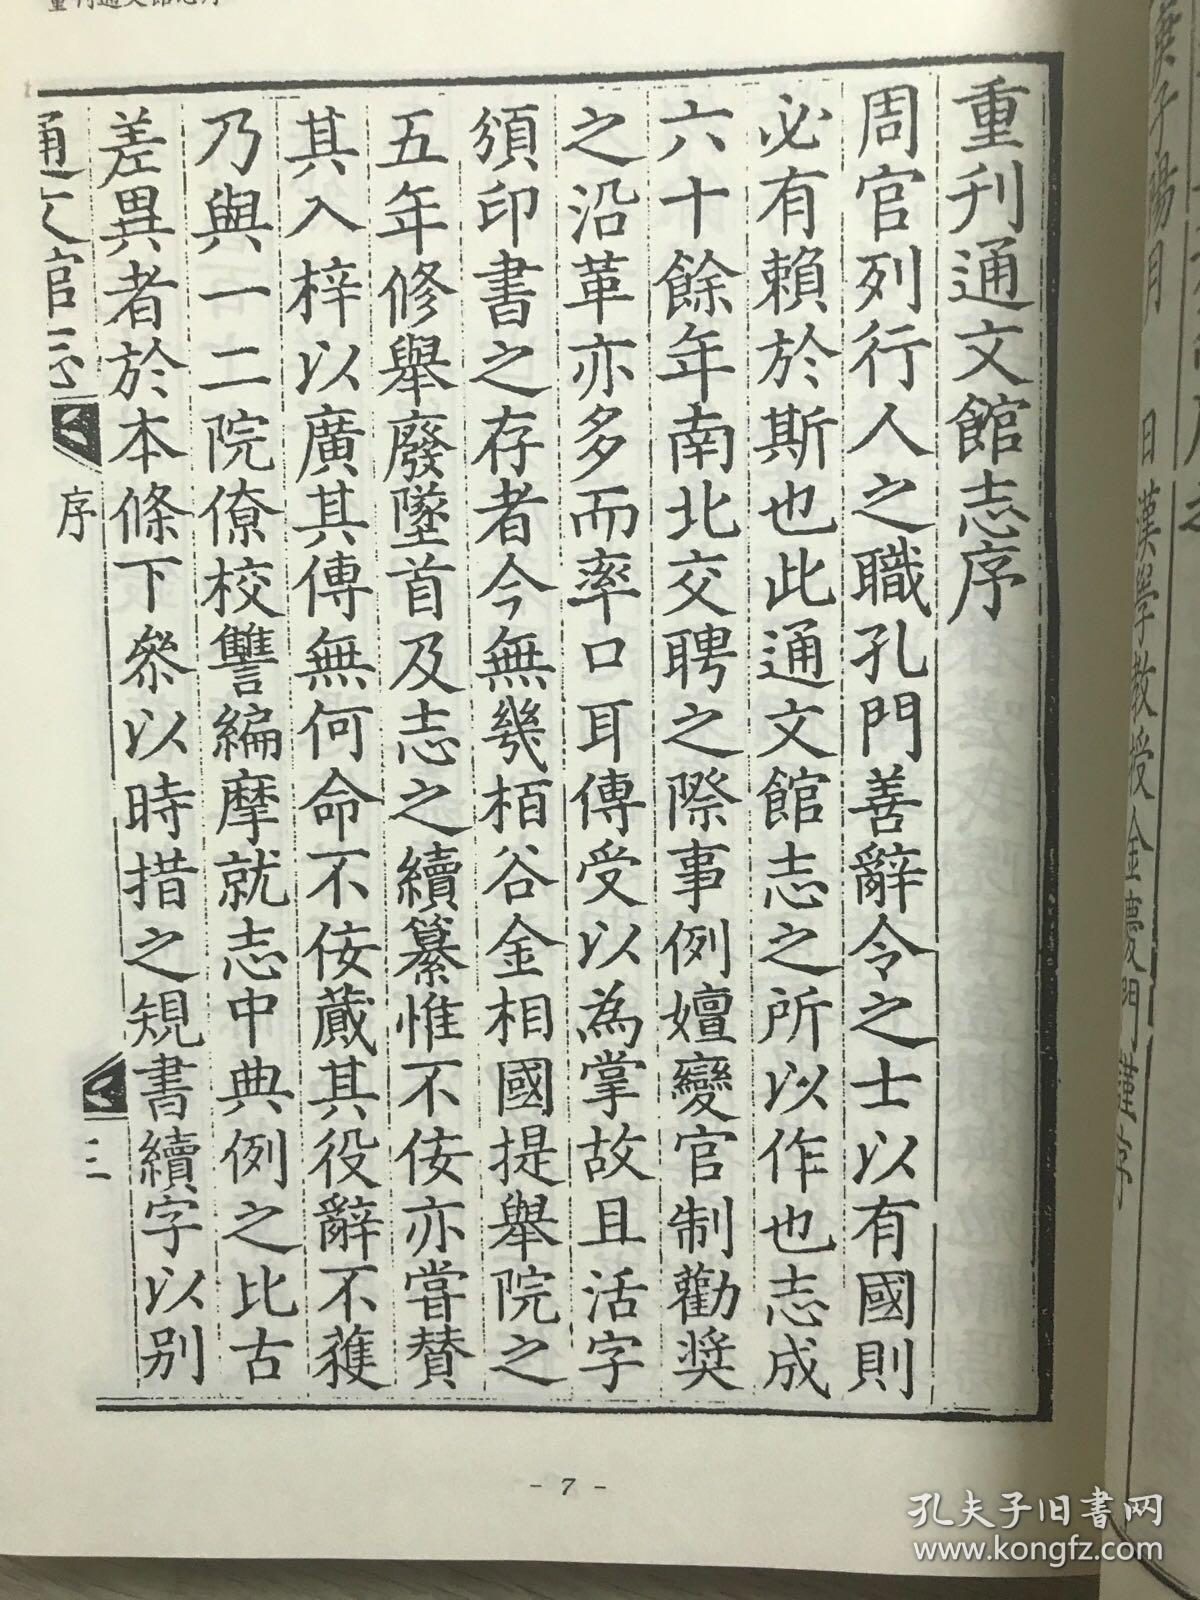 重刊通文館志序
周官列行人之職孔門善辭令之士以有國則
必有賴於斯也此通文館志之所以作也志成
六十餘年南北交聘之際事例嬗變官制勸奨
之沿革亦多而率口耳傳受以為掌故且活字
須印書之存者今無幾栢谷金相國提舉院之
五年修舉廢墜首及志之續纂惟不侫亦嘗賛
其入梓以廣其傳無何命不侫蕆其役辭不獲
乃與一二院僚校讐編摩就志中典例之比古
差異者於本條下叅以時措之規書續字以别
通文館志
序
三
- 7 -
日漢學教授金慶門謹序
孔夫子旧书网
www.kongfz.com